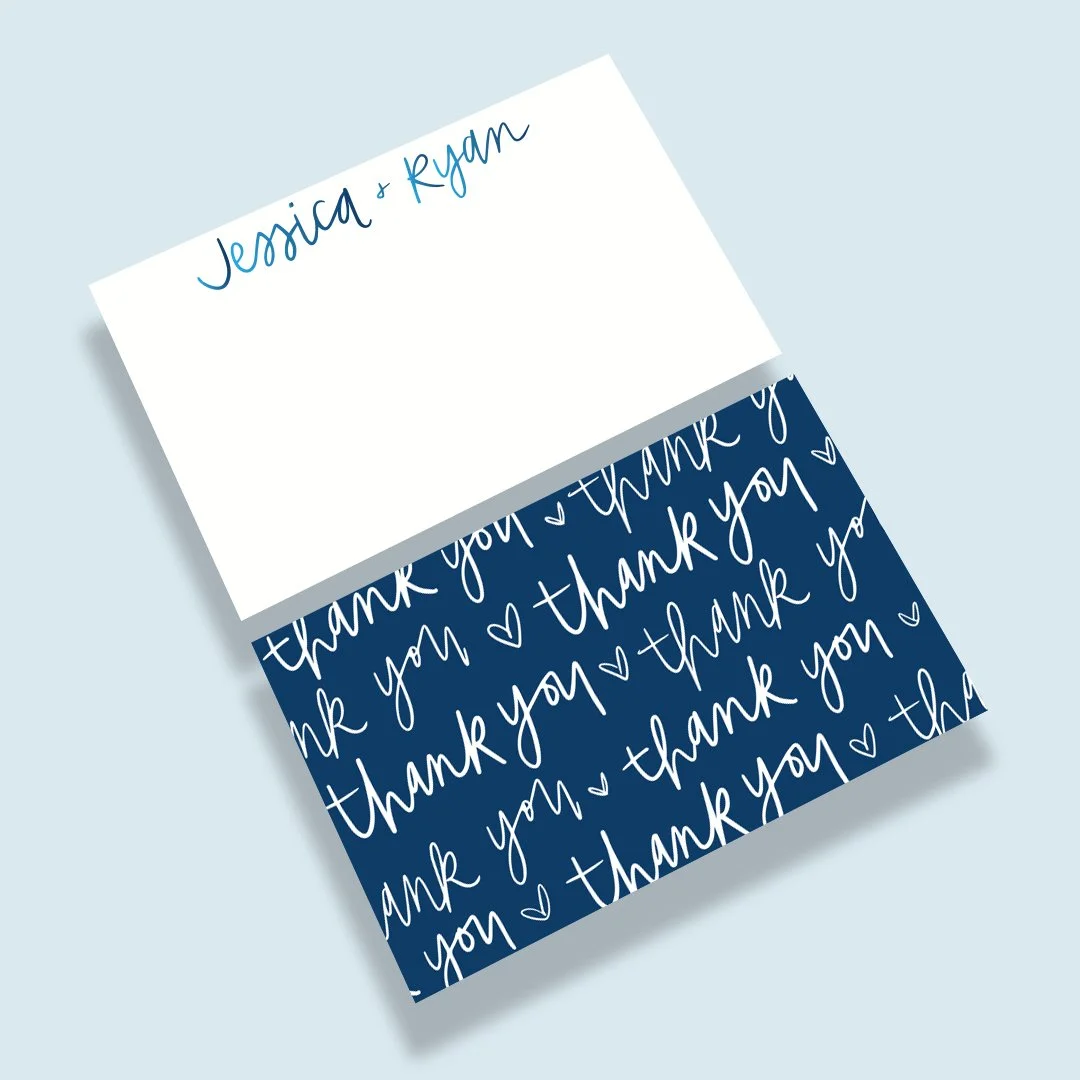 Jessica + Ryan
thank you ♡ thank y
nk you ♡ thank you ♡
thank you ♡ thank yo
ank you ♡ thank you ♡
you ♡ thank you ♡ tha